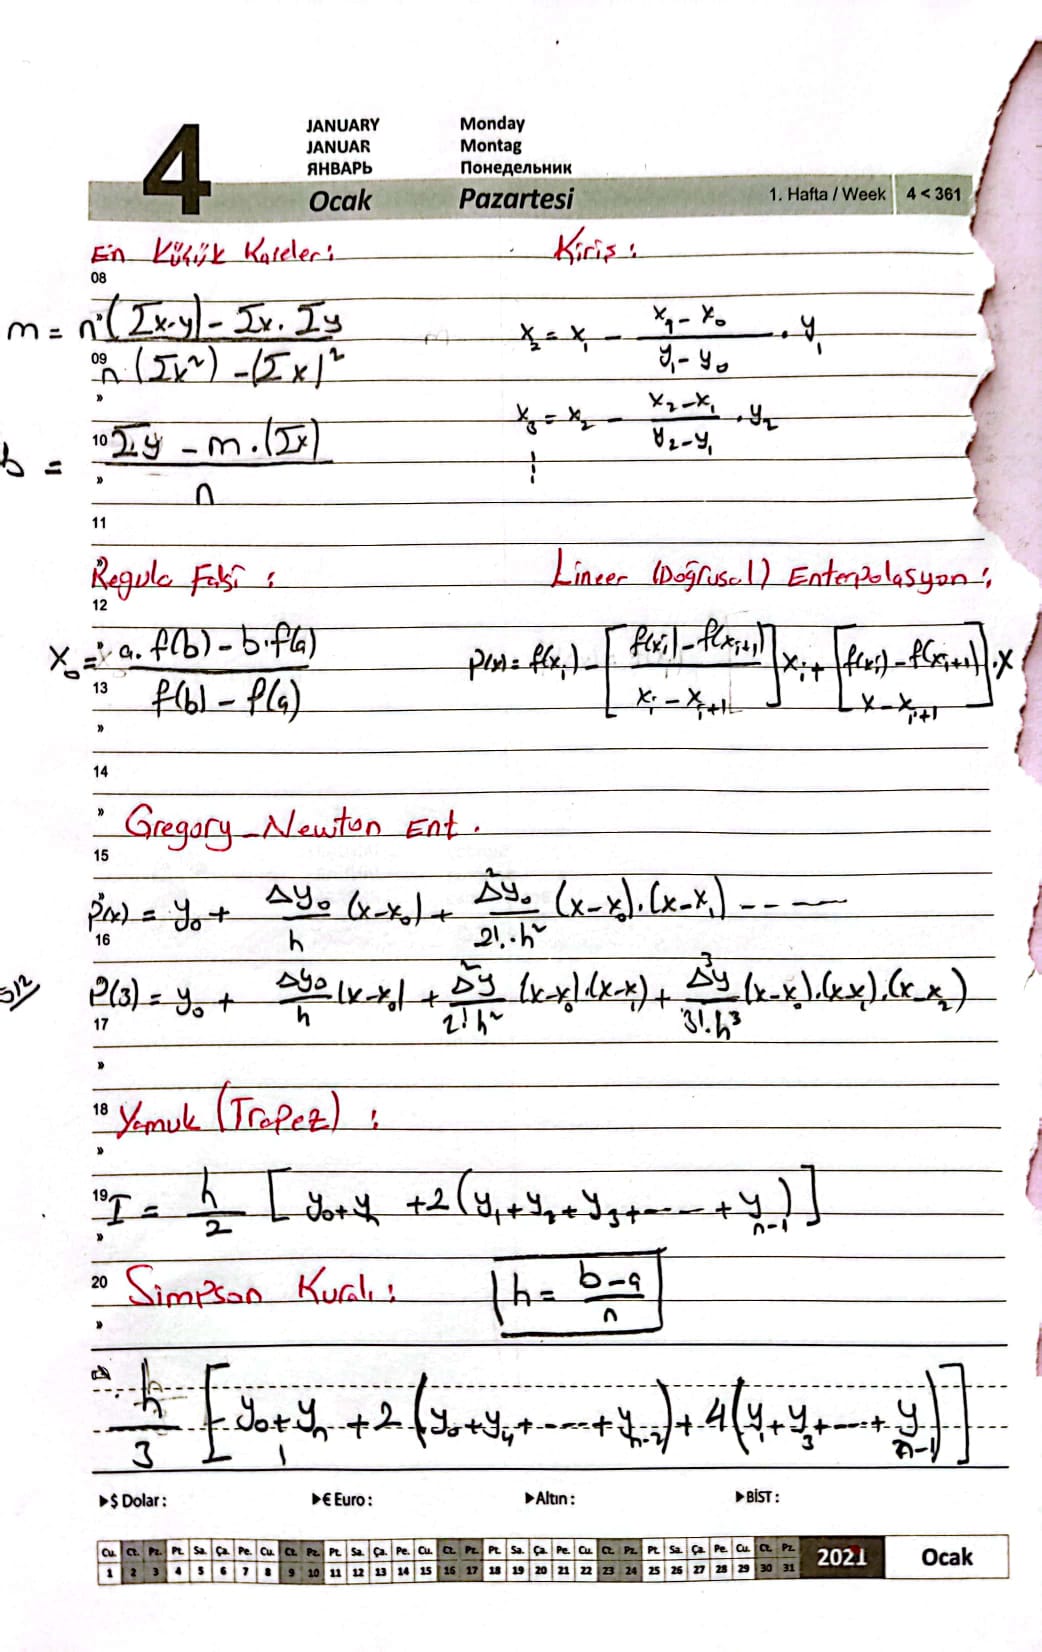 4
JANUARY Monday
JANUAR Montag
ЯНВАРЬ Понедельник
Ocak Pazartesi 1. Hafta / Week 4 < 361
En Küçük Kareler : Kiriş :
08
m = n (Σx.y) - Σx . Σy / n (Σx²) - (Σx)²
x₂ = x₁ - (x₁ - x₀ / y₁ - y₀) . y₁
09
»
x₃ = x₂ - (x₂ - x₁ / y₂ - y₁) . y₂
10
b = Σy - m . (Σx) / n
»
11
Regula Falsi : Lineer (Doğrusal) Enterpolasyon :
12
x₀ = a . f(b) - b . f(a) / f(b) - f(a)
P(x) = f(xᵢ) - [f(xᵢ) - f(xᵢ₊₁) / xᵢ - xᵢ₊₁] xᵢ + [f(xᵢ) - f(xᵢ₊₁) / x - xᵢ₊₁] . x
13
»
14
» Gregory - Newton Ent .
15
P(x) = y₀ + Δy₀ / h (x-x₀) + Δ²y₀ / 2! . h² (x-x₀) . (x-x₁) - - -
16
P(3) = y₀ + Δy₀ / h (x-x₀) + Δ²y / 2! h² (x-x₀) . (x-x₁) + Δ³y / 3! . h³ (x-x₀) . (x x₁) . (x-x₂)
17
»
18 Yamuk (Trapez) :
»
19 I = h / 2 [ y₀ + yₙ + 2 (y₁ + y₂ + y₃ + --- + yₙ₋₁) ]
»
20 Simpson Kuralı : h = b - a / n
»
h / 3 [ y₀ + yₙ + 2 ( + y₄ + ---- + yₙ₋₂) + 4 (y₁ + y₃ + --- + yₙ₋₁) ]
▶$ Dolar : ▶€ Euro : ▶Altın : ▶BİST :
Cu. Ct. Pz. Pt. Sa. Ça. Pe. Cu. Ct. Pz. Pt. Sa. Ça. Pe. Cu. Ct. Pz. Pt. Sa. Ça. Pe. Cu. Ct. Pz. Pt. Sa. Ça. Pe. Cu. Ct. Pz.
1 2 3 4 5 6 7 8 9 10 11 12 13 14 15 16 17 18 19 20 21 22 23 24 25 26 27 28 29 30 31
2021 Ocak